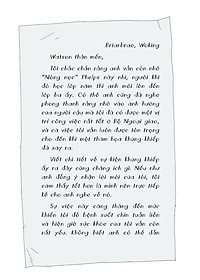 Briarbrae, Woking
Watson thân mến,
Tôi chắc chắn rằng anh vẫn còn nhớ
"Nòng nọc" Phelps này nhỉ, người khi
đó học lớp năm thì anh mới lên đến
lớp ba ấy. Có thể anh cũng đã nghe
phong thanh rằng nhờ vào ảnh hưởng
của người cậu mà tôi đã có được một vị
trí công việc rất tốt ở Bộ Ngoại giao,
và cả việc tôi vẫn luôn được tôn trọng
cho đến khi một thảm họa khủng khiếp
đã xảy ra.
Viết chi tiết về sự kiện khủng khiếp
ấy ra đây cũng chẳng ích gì. Nếu như
anh đồng ý nhận lời mời của tôi, tôi
cảm thấy tốt hơn là mình nên trực tiếp
kể cho anh nghe về nó.
Sự việc này căng thẳng đến mức
khiến tôi đổ bệnh suốt chín tuần liền
và hiện giờ sức khỏe của tôi vẫn còn
rất yếu. Không biết anh có thể dẫn